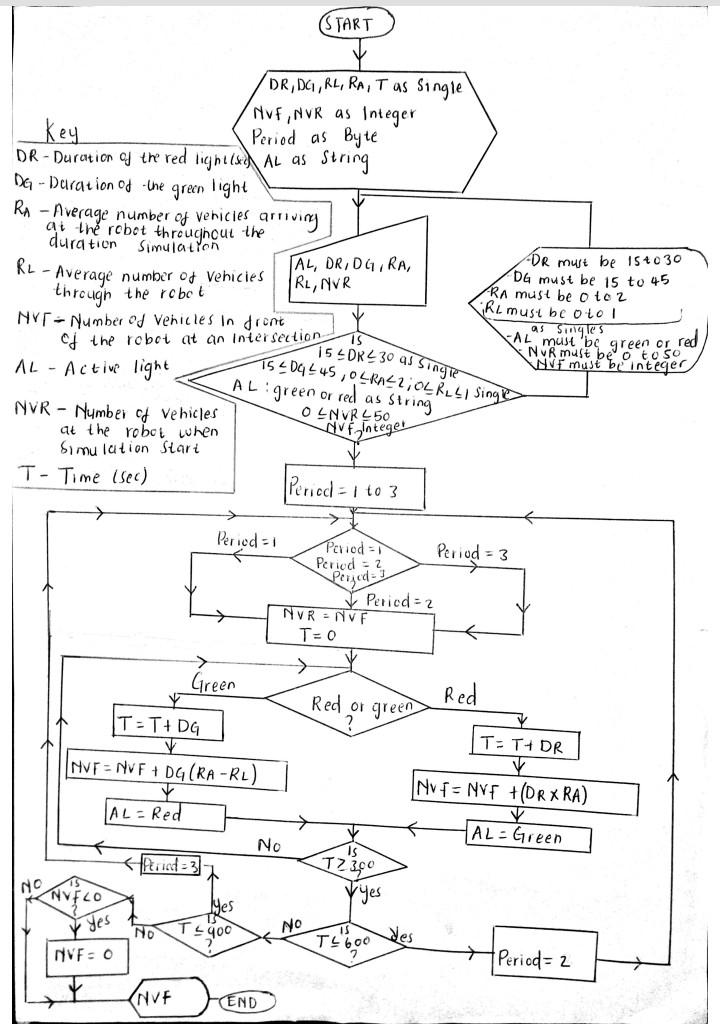 START
DR, DG, RL, RA, T as Single
NVF, NVR as Integer
Period as Byte
AL as String
Key
DR - Duration of the red light (sec)
DG - Duration of the green light
RA - Average number of vehicles arriving
at the robot throughout the
duration simulation
RL - Average number of vehicles
through the robot
NVF - Number of Vehicles In front
of the robot at an intersection
AL - Active light
NVR - Number of Vehicles
at the robot when
Simulation Start
T - Time (sec)
AL, DR, DG, RA,
RL, NVR
-DR must be 15 to 30
DG must be 15 to 45
RA must be 0 to 2
RL must be 0 to 1
as Singles
-AL must be green or red
-NVR must be 0 to 50
NVF must be integer
Is
15 ≤ DR ≤ 30 as Single
15 ≤ DG ≤ 45, 0 ≤ RA ≤ 2; 0 ≤ RL ≤ 1 Single
AL : green or red as String
0 ≤ NVR ≤ 50
NVF, Integer
?
Period = 1 to 3
Period = 1
Period = 1
Period = 2
Period = 3
?
Period = 3
Period = 2
NVR = NVF
T = 0
Green
Red or green
?
Red
T = T + DG
T = T + DR
NVF = NVF + DG (RA - RL)
NVF = NVF + (DR X RA)
AL = Red
AL = Green
No
Is
T ≥ 300
?
Yes
Period = 3
NO
is
NVF < 0
?
Yes
NVF = 0
Yes
No
Is
T ≤ 900
?
No
Is
T ≤ 600
?
Yes
Period = 2
NVF
END